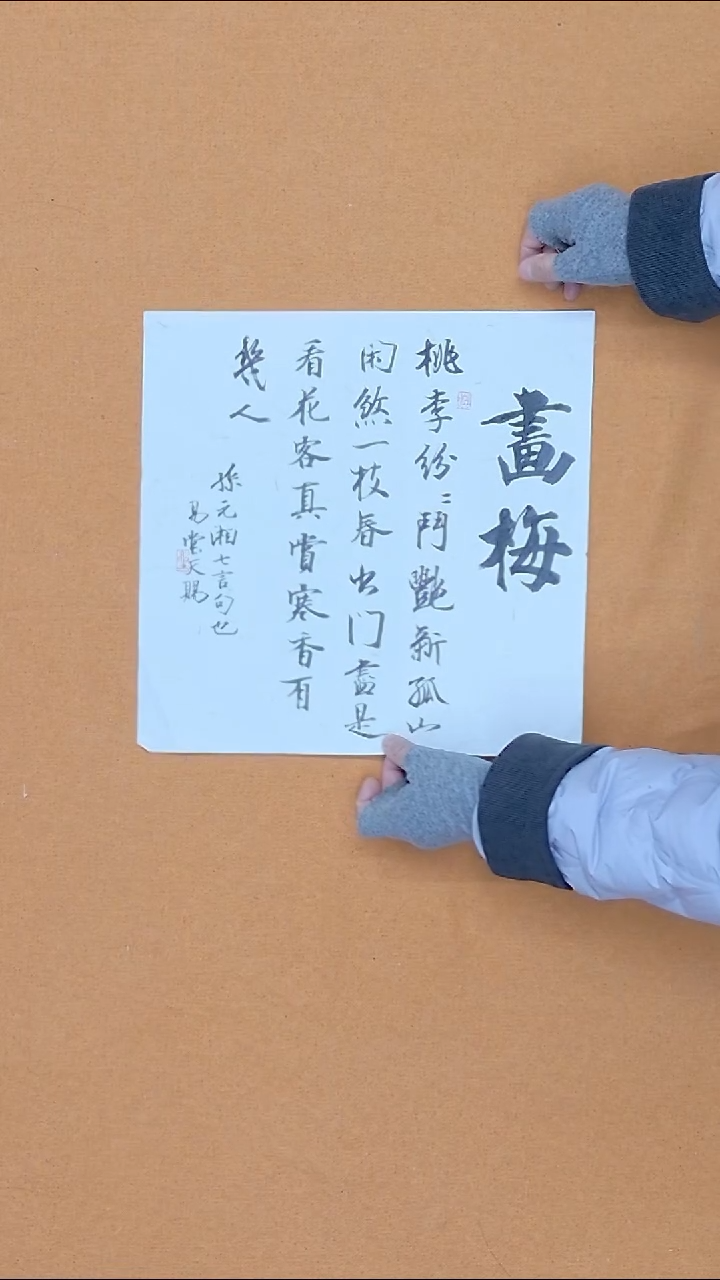 畫梅
桃李紛〻鬥艷新孤山
闲煞一枝春出门盡是
看花客真賞寒香有
幾人
孫元湘七言句也
易堂天賜